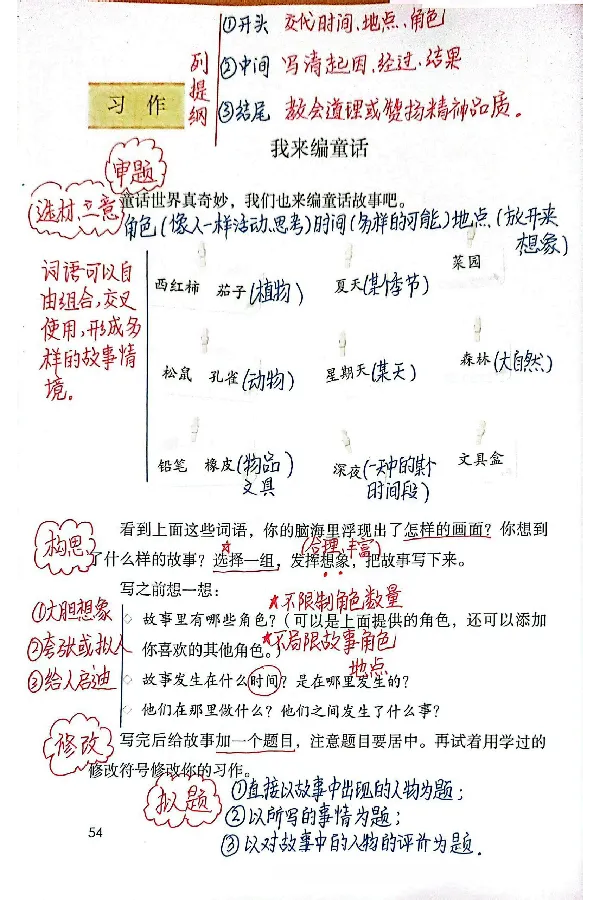 列提纲
①开头 交代时间、地点、角色
②中间 写清起因、经过、结果
③结尾 教会道理或赞扬精神品质。
习 作
我来编童话
审题
选材、立意
童话世界真奇妙，我们也来编童话故事吧。
角色（像人一样活动、思考）时间（多样的可能）地点（放开来想象）
词语可以自
由组合，交叉
使用，形成多
样的故事情
境。
西红柿 茄子（植物） 夏天（某个季节） 菜园
松鼠 孔雀（动物） 星期天（某天） 森林（大自然）
铅笔 橡皮（物品 文具） 深夜（一天中的某个时间段） 文具盒
构思
看到上面这些词语，你的脑海里浮现出了怎样的画面？你想到
（合理、丰富）
了什么样的故事？选择一组，发挥想象，把故事写下来。
写之前想一想：
①大胆想象
②夸张或拟人
③给人启迪
★不限制角色数量
◇ 故事里有哪些角色？（可以是上面提供的角色，还可以添加
你喜欢的其他角色。）
★不局限故事角色
地点
◇ 故事发生在什么时间？是在哪里发生的？
◇ 他们在那里做什么？他们之间发生了什么事？
修改
写完后给故事加一个题目，注意题目要居中。再试着用学过的
修改符号修改你的习作。
拟题
①直接以故事中出现的人物为题；
②以所写的事情为题；
③以对故事中的人物的评价为题．
54